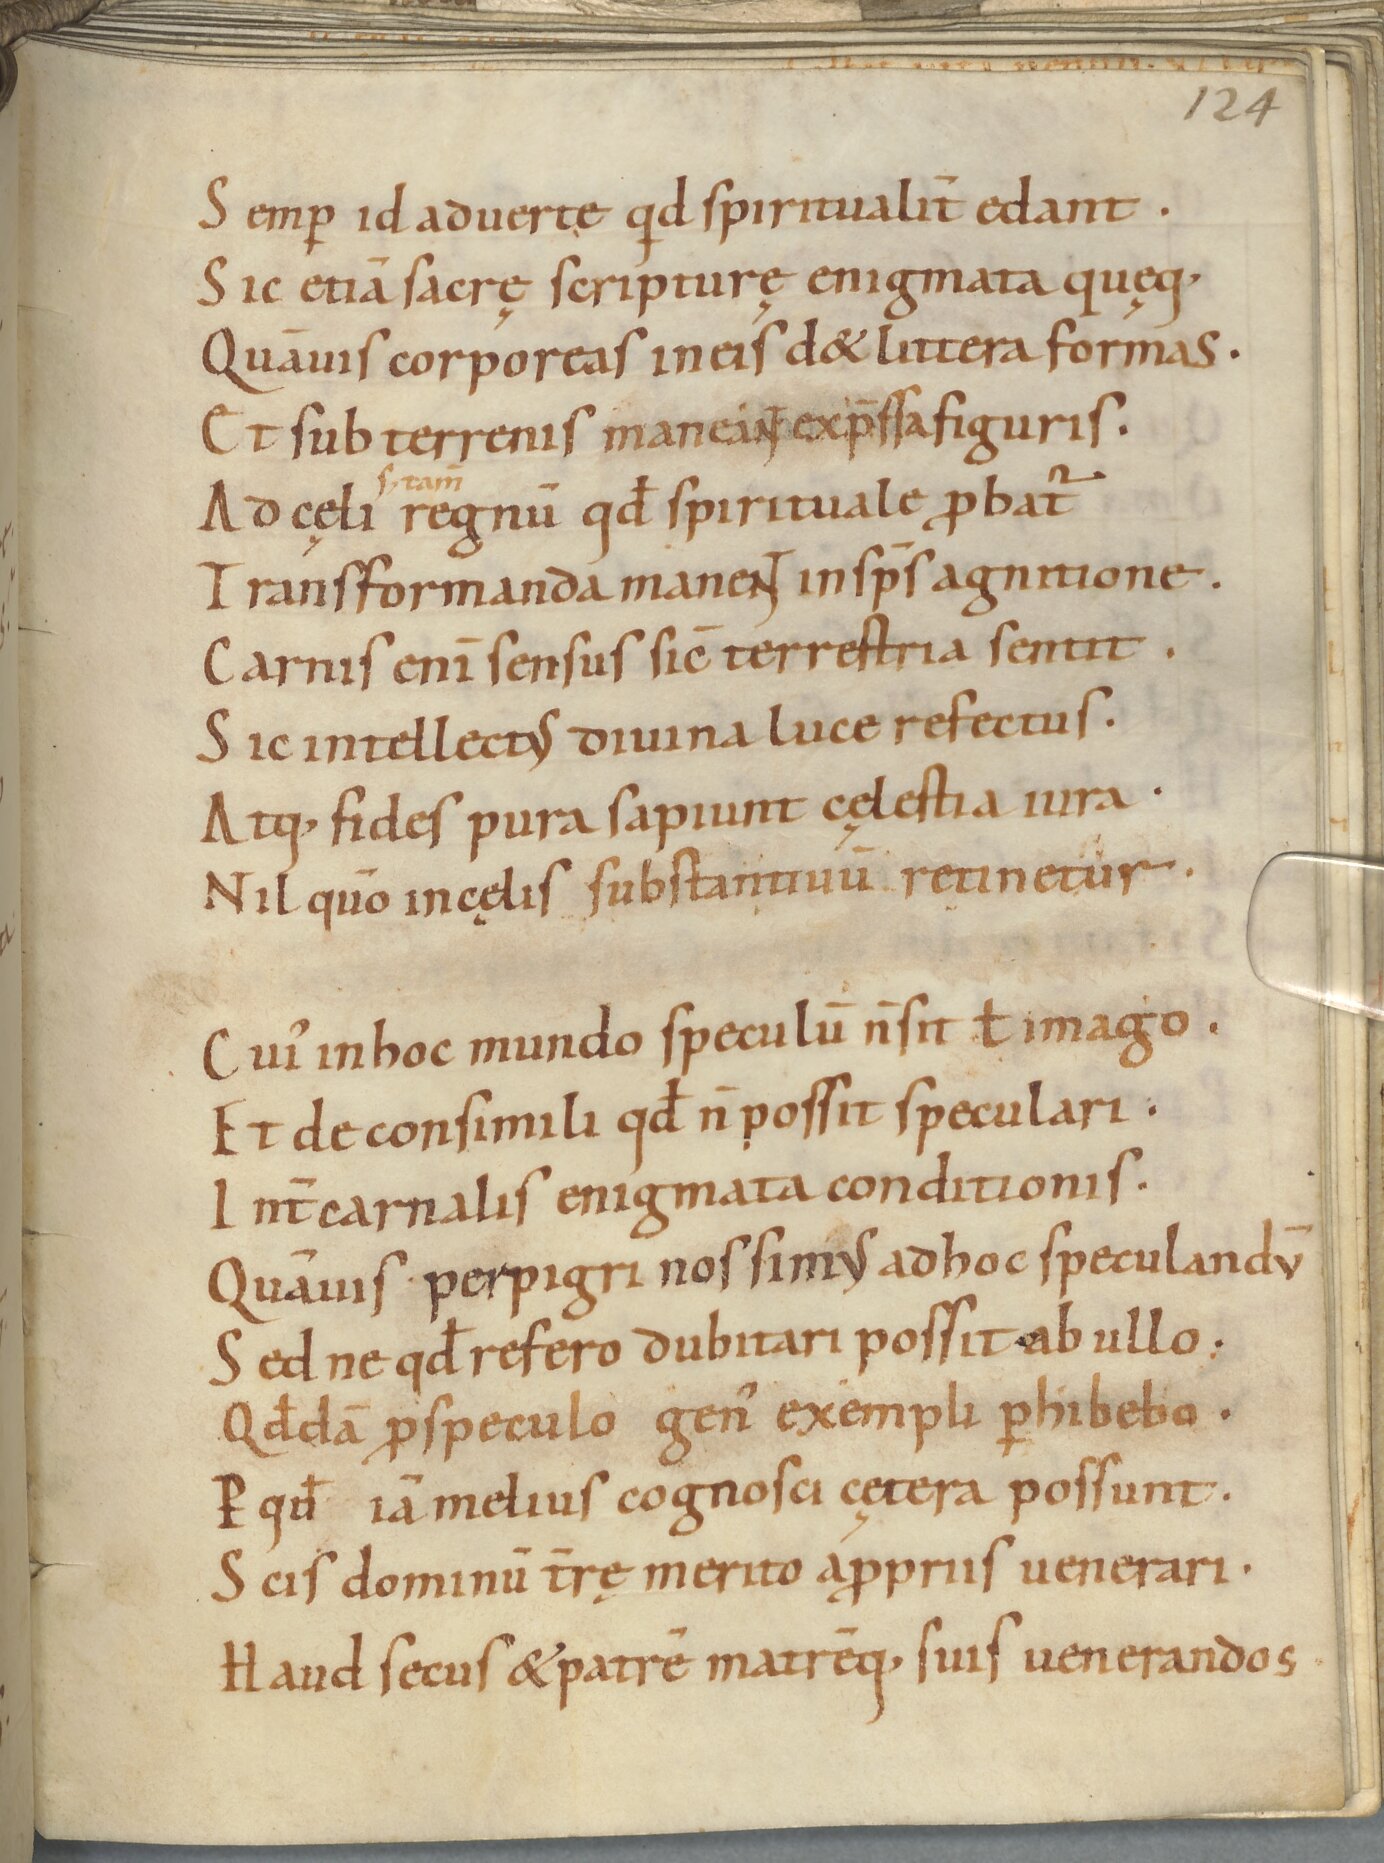 124
Semꝑ id aduerte qd spiritualit̄ edant .
Sic etiā sacrę scripturę enigmata quęq,
Quāuis corporeas in eis d& littera formas .
Et sub terrenis maneant exp̄ssa figuris .
s. tam̄
Ad cęli regnū qđ spirituale ꝓbat᷑
Transformanda manent in sp̄s agnitione .
Carnis enī sensus sic̄ terrestria sentit .
Sic intellectus diuina luce refectus .
Atq, fides pura sapiunt cęlestia iura .
Nil quō in cęlis substantiuū retinetur .
Cui' in hoc mundo speculū n̄ sit ł imago .
Et de consimili qđ n̄ possit speculari .
Int̄ carnalis enigmata conditionis .
Quāuis perpigri nos simus ad hoc speculandū
Sed ne qđ refero dubitari possit ab ullo .
Qđdā ꝓ speculo gen' exempli ꝑhibebo .
P qđ iā melius cognosci cętera possunt .
Scis dominū t̄rę merito a ꝓpriis uenerari .
Haud secus & patrē matrēq, suis uenerandos